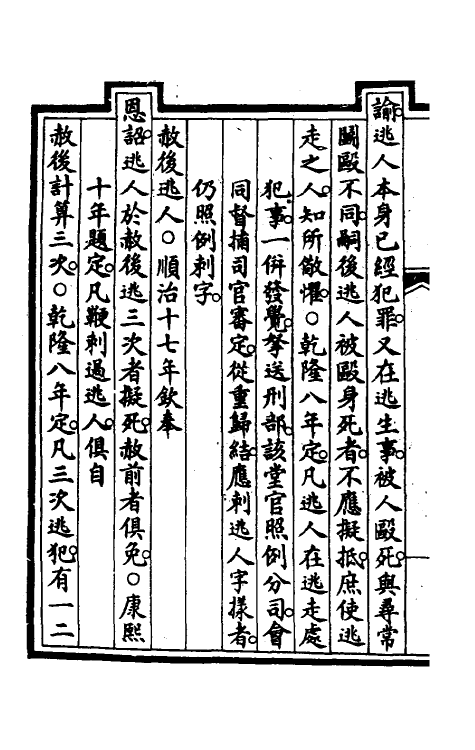 諭逃人本身已經犯罪又在逃生事被人毆死與尋常
鬬毆不同嗣後逃人被毆身死者不應擬抵庶使逃
走之人知所儆懼○乾隆八年定凡逃人在逃走處
犯事一併發覺拏送刑部該堂官照例分司會
同督捕司官審定從重歸結應刺逃人字樣者
仍照例刺字
赦後逃人○順治十七年欽奉
恩詔逃人於赦後逃三次者擬死赦前者俱免○康熙
十年題定凡鞭刺過逃人俱自
赦後計算三次○乾隆八年定凡三次逃犯有一二